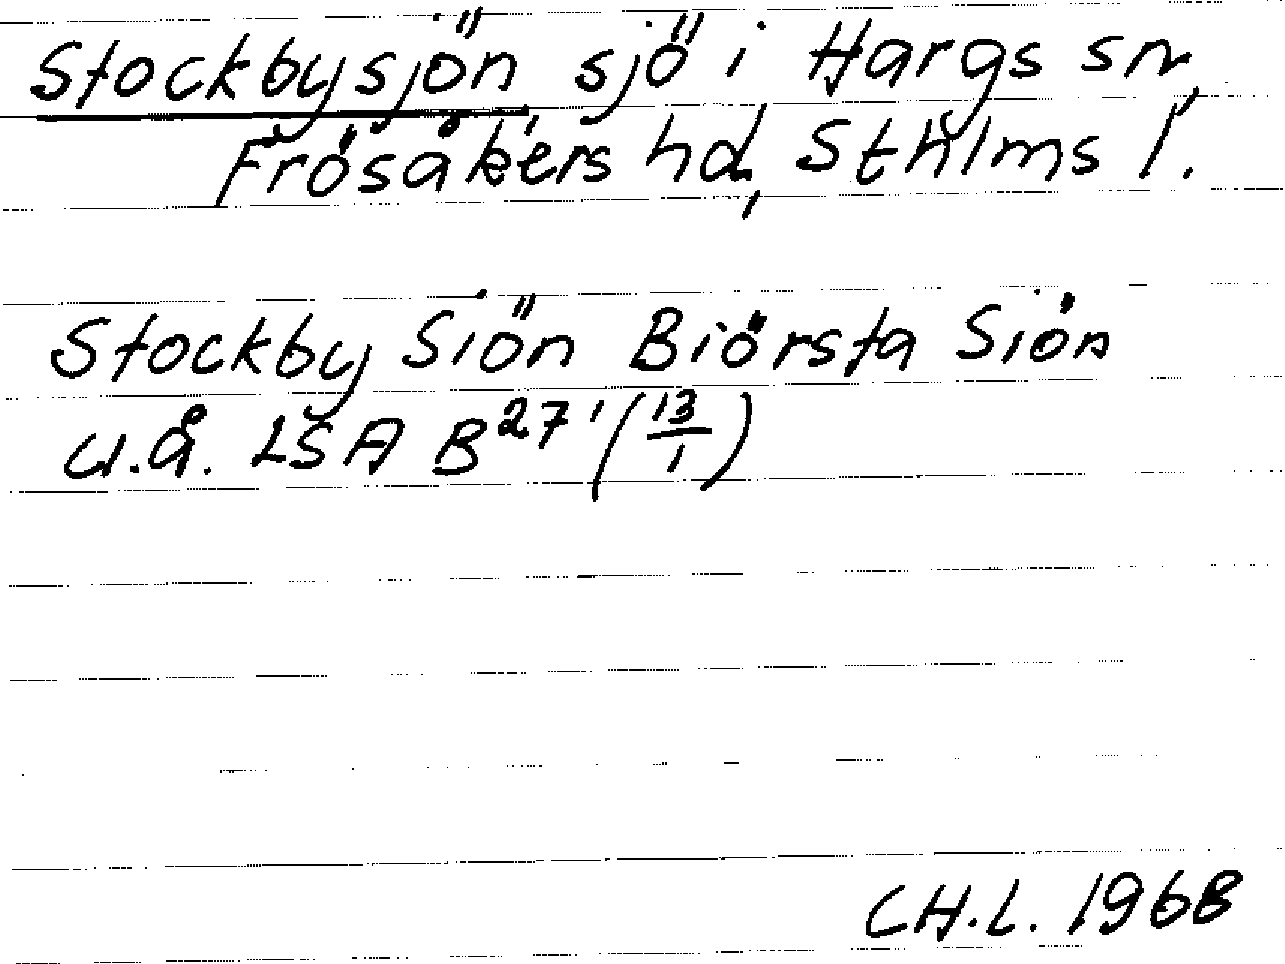 Stockbysjön sjö i Hargs sn,
Frösåkers hd, Sthlms l.
Stockby Siön Biörsta Siön
u.å. LSA B 27 (13/1)
CH.L. 1968